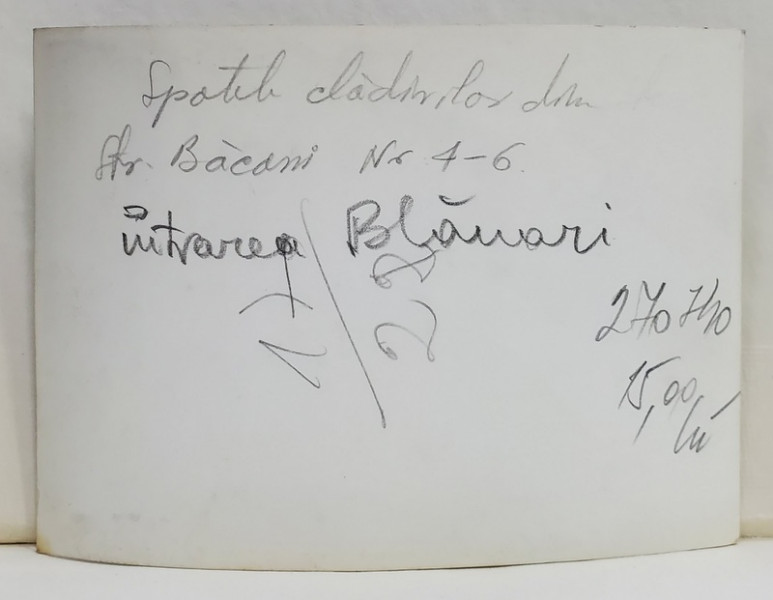 Spatele clădirilor din
Str. Băcani Nr 4-6.
întrarea Blănari
17/22
15,00 lei